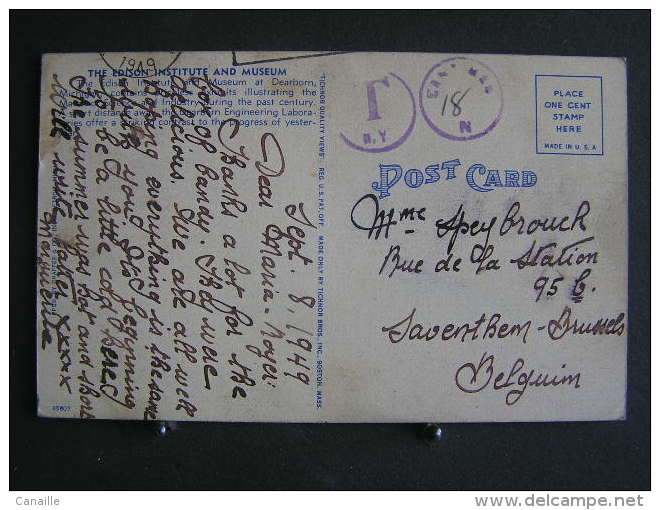 1949
THE EDISON INSTITUTE AND MUSEUM
The Edison Institute and Museum at Dearborn,
exhibits illustrating the
and Industry during the past century.
short distance away the Dearborn Engineering Labora-
offer a contrast to the progress of yester-
Sept. 8, 1949
Dear Maria-
Thanks a lot for the
box of candy. They were
delicious. We are all well
everything is the same
It's beginning
to be a little cold here
Our summer was hot and short
Will write later xxxx
Marguerite
45807
"TICHNOR QUALITY VIEWS" REG. U.S. PAT. OFF. MADE ONLY BY TICHNOR BROS. INC., BOSTON, MASS.
T
N.Y.
18
N
PLACE
ONE CENT
STAMP
HERE
MADE IN U.S.A.
POST CARD
Mme Speybrouck
Rue de la Station
95 b.
Saventhem-Brussels
Belguim
Canaille
delcampe.net